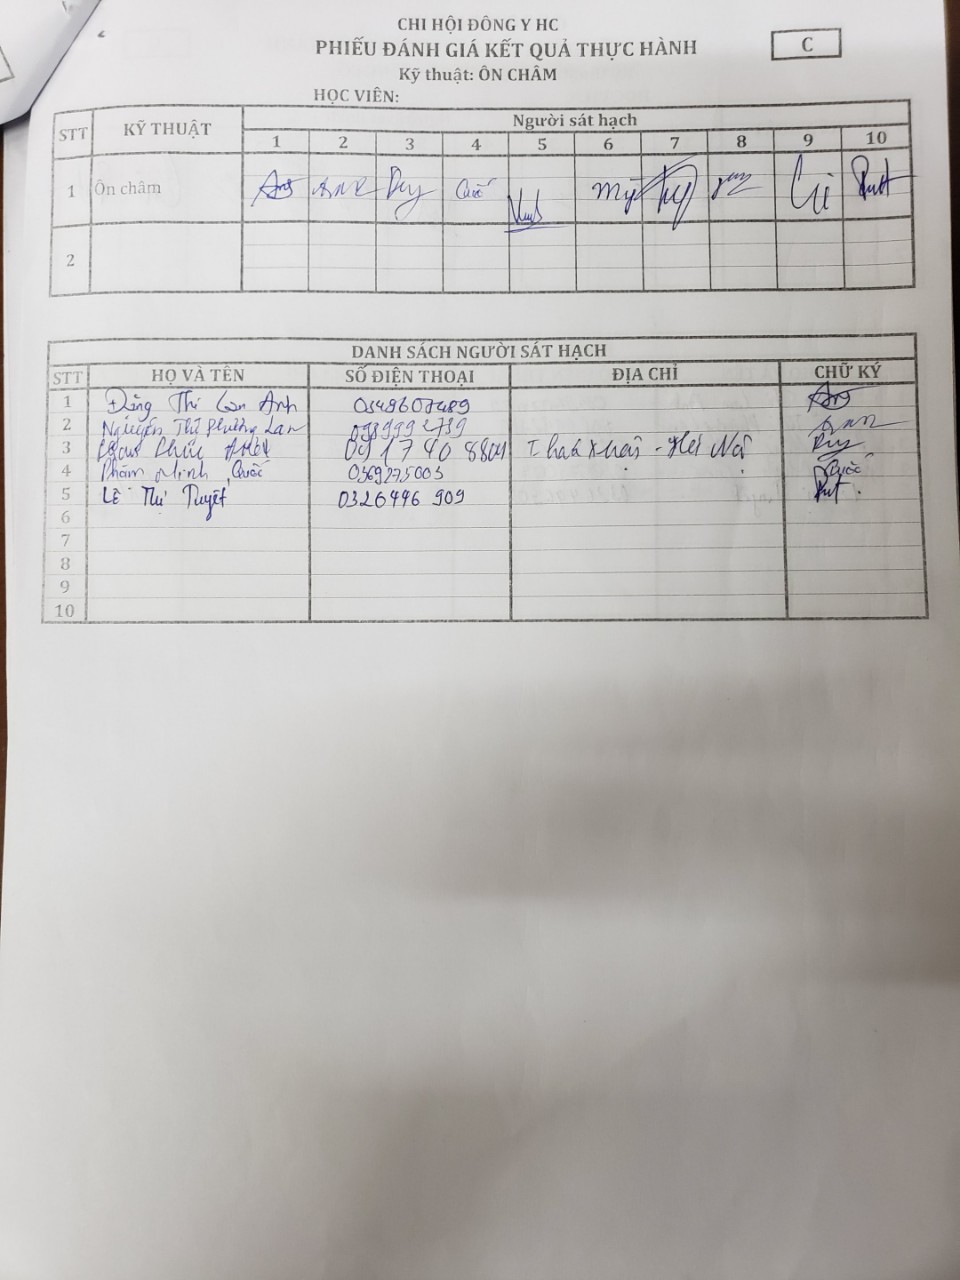 CHI HỘI ĐÔNG Y HC
PHIẾU ĐÁNH GIÁ KẾT QUẢ THỰC HÀNH
C
Kỹ thuật: ÔN CHÂM
HỌC VIÊN:
STT KỸ THUẬT Người sát hạch
1 2 3 4 5 6 7 8 9 10
1 Ôn châm Quốc Mỹ
2
DANH SÁCH NGƯỜI SÁT HẠCH
STT HỌ VÀ TÊN SỐ ĐIỆN THOẠI ĐỊA CHỈ CHỮ KÝ
1 Đặng Thị Lan Anh 0348607489
2 Nguyễn Thị Phương Lan
3 0917408804 - Hà Nội
4 Phạm Minh Quốc 0369275003 Quốc
5 Lê Thị Tuyết 0326446 909
6
7
8
9
10